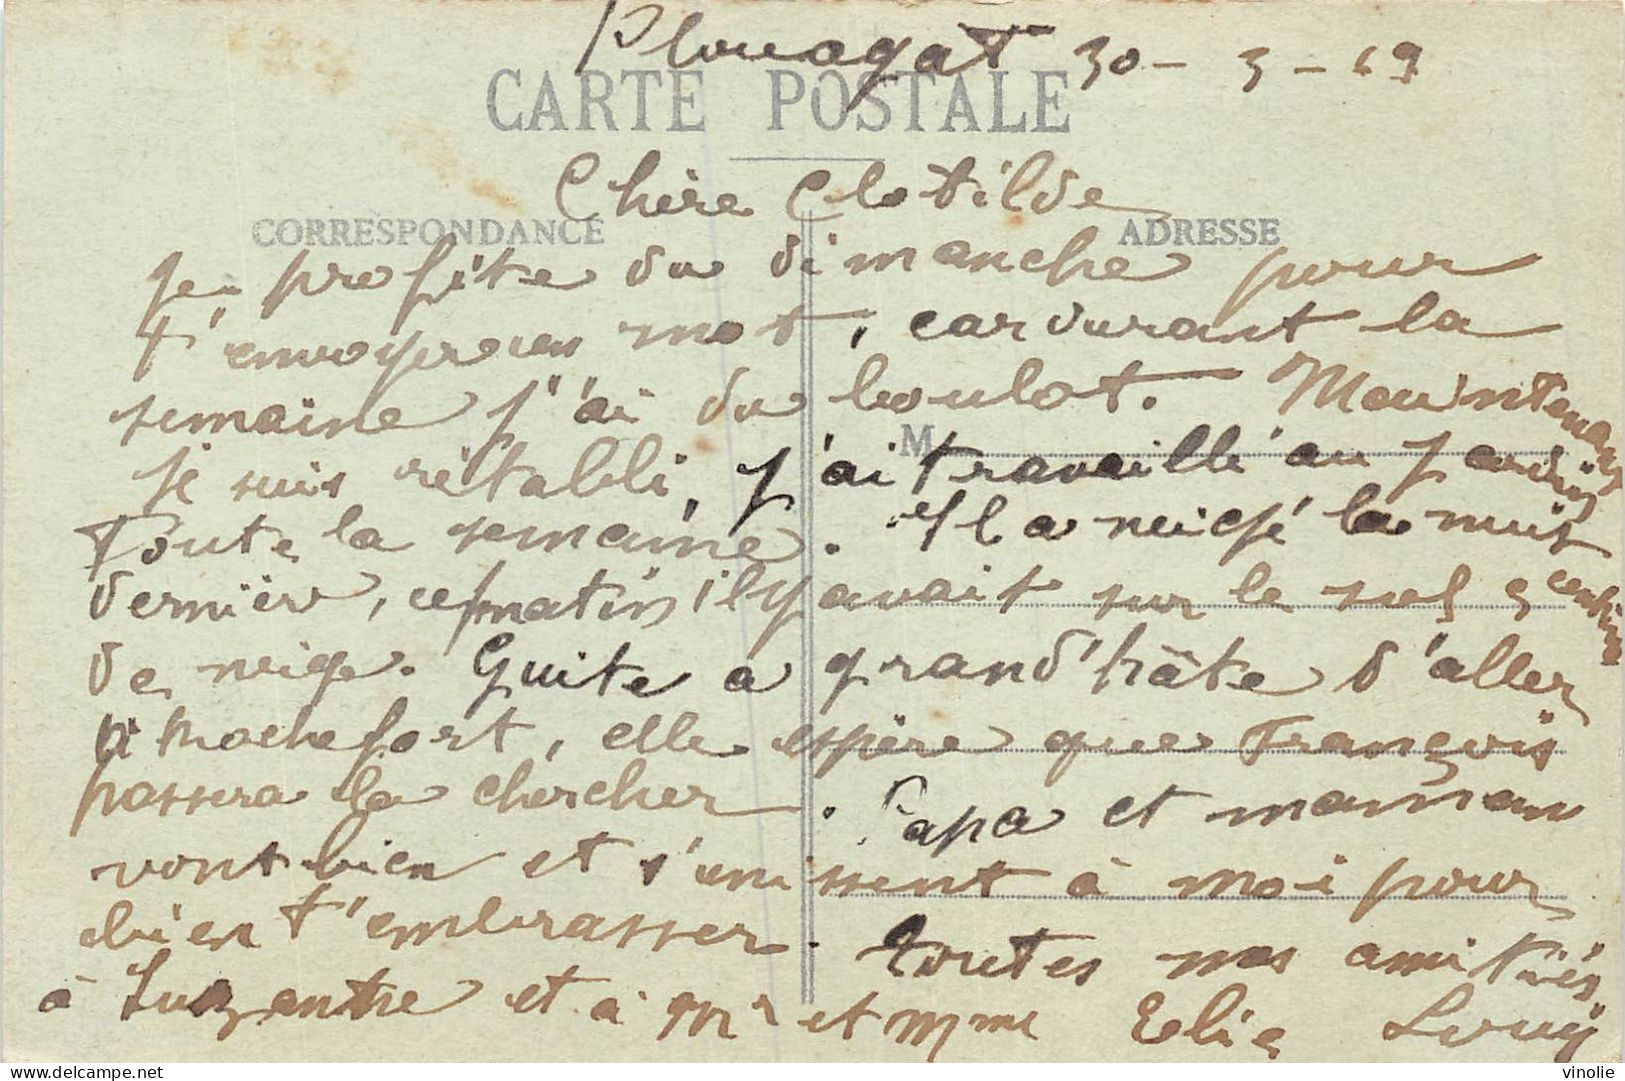 Plouagat 30-3-19
CARTE POSTALE
Chère Clotilde
CORRESPONDANCE
ADRESSE
Je profite du dimanche pour
t'envoyer un mot, car durant la
semaine j'ai du boulot. Maintenant
M
je suis rétabli, j'ai travaillé au jardin
Toute la semaine. Il a neigé la nuit
dernière, ce matin il y avait sur le sol 5 centim
de neige. Guite a grand'hâte d'aller
à Rochefort, elle espère que François
passera la chercher. Papa et maman
vont bien et s'unissent à moi pour
bien t'embrasser. Toutes nos amitiés
à et à Mr et Mme Elie Louis
delcampe.net
vinolie